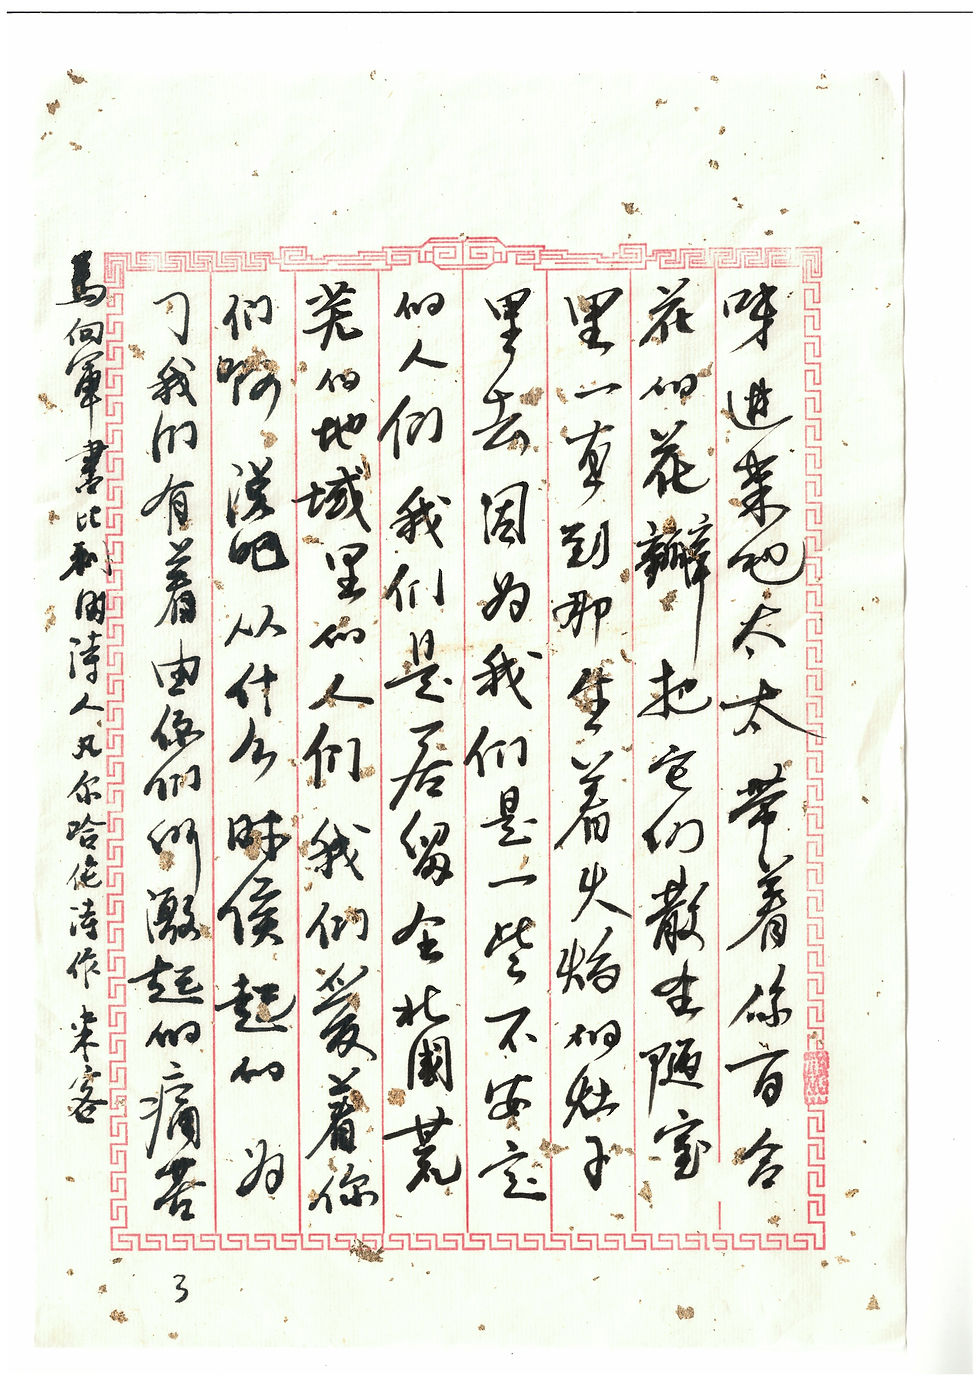 味 进来吧太太 带着你百合
花的花瓣 把它们散在陋室
里一直到那生着火焰的灶子
里去 因为我们是一些不安定
的人们 我们是居留在北国荒
芜的地域里的人们 我们爱着你
们啊 说吧 从什么时候起的 为
了我们有着由你们所激起的痛苦
馬向軍 書比利时诗人凡尔哈伦诗作 来客
3